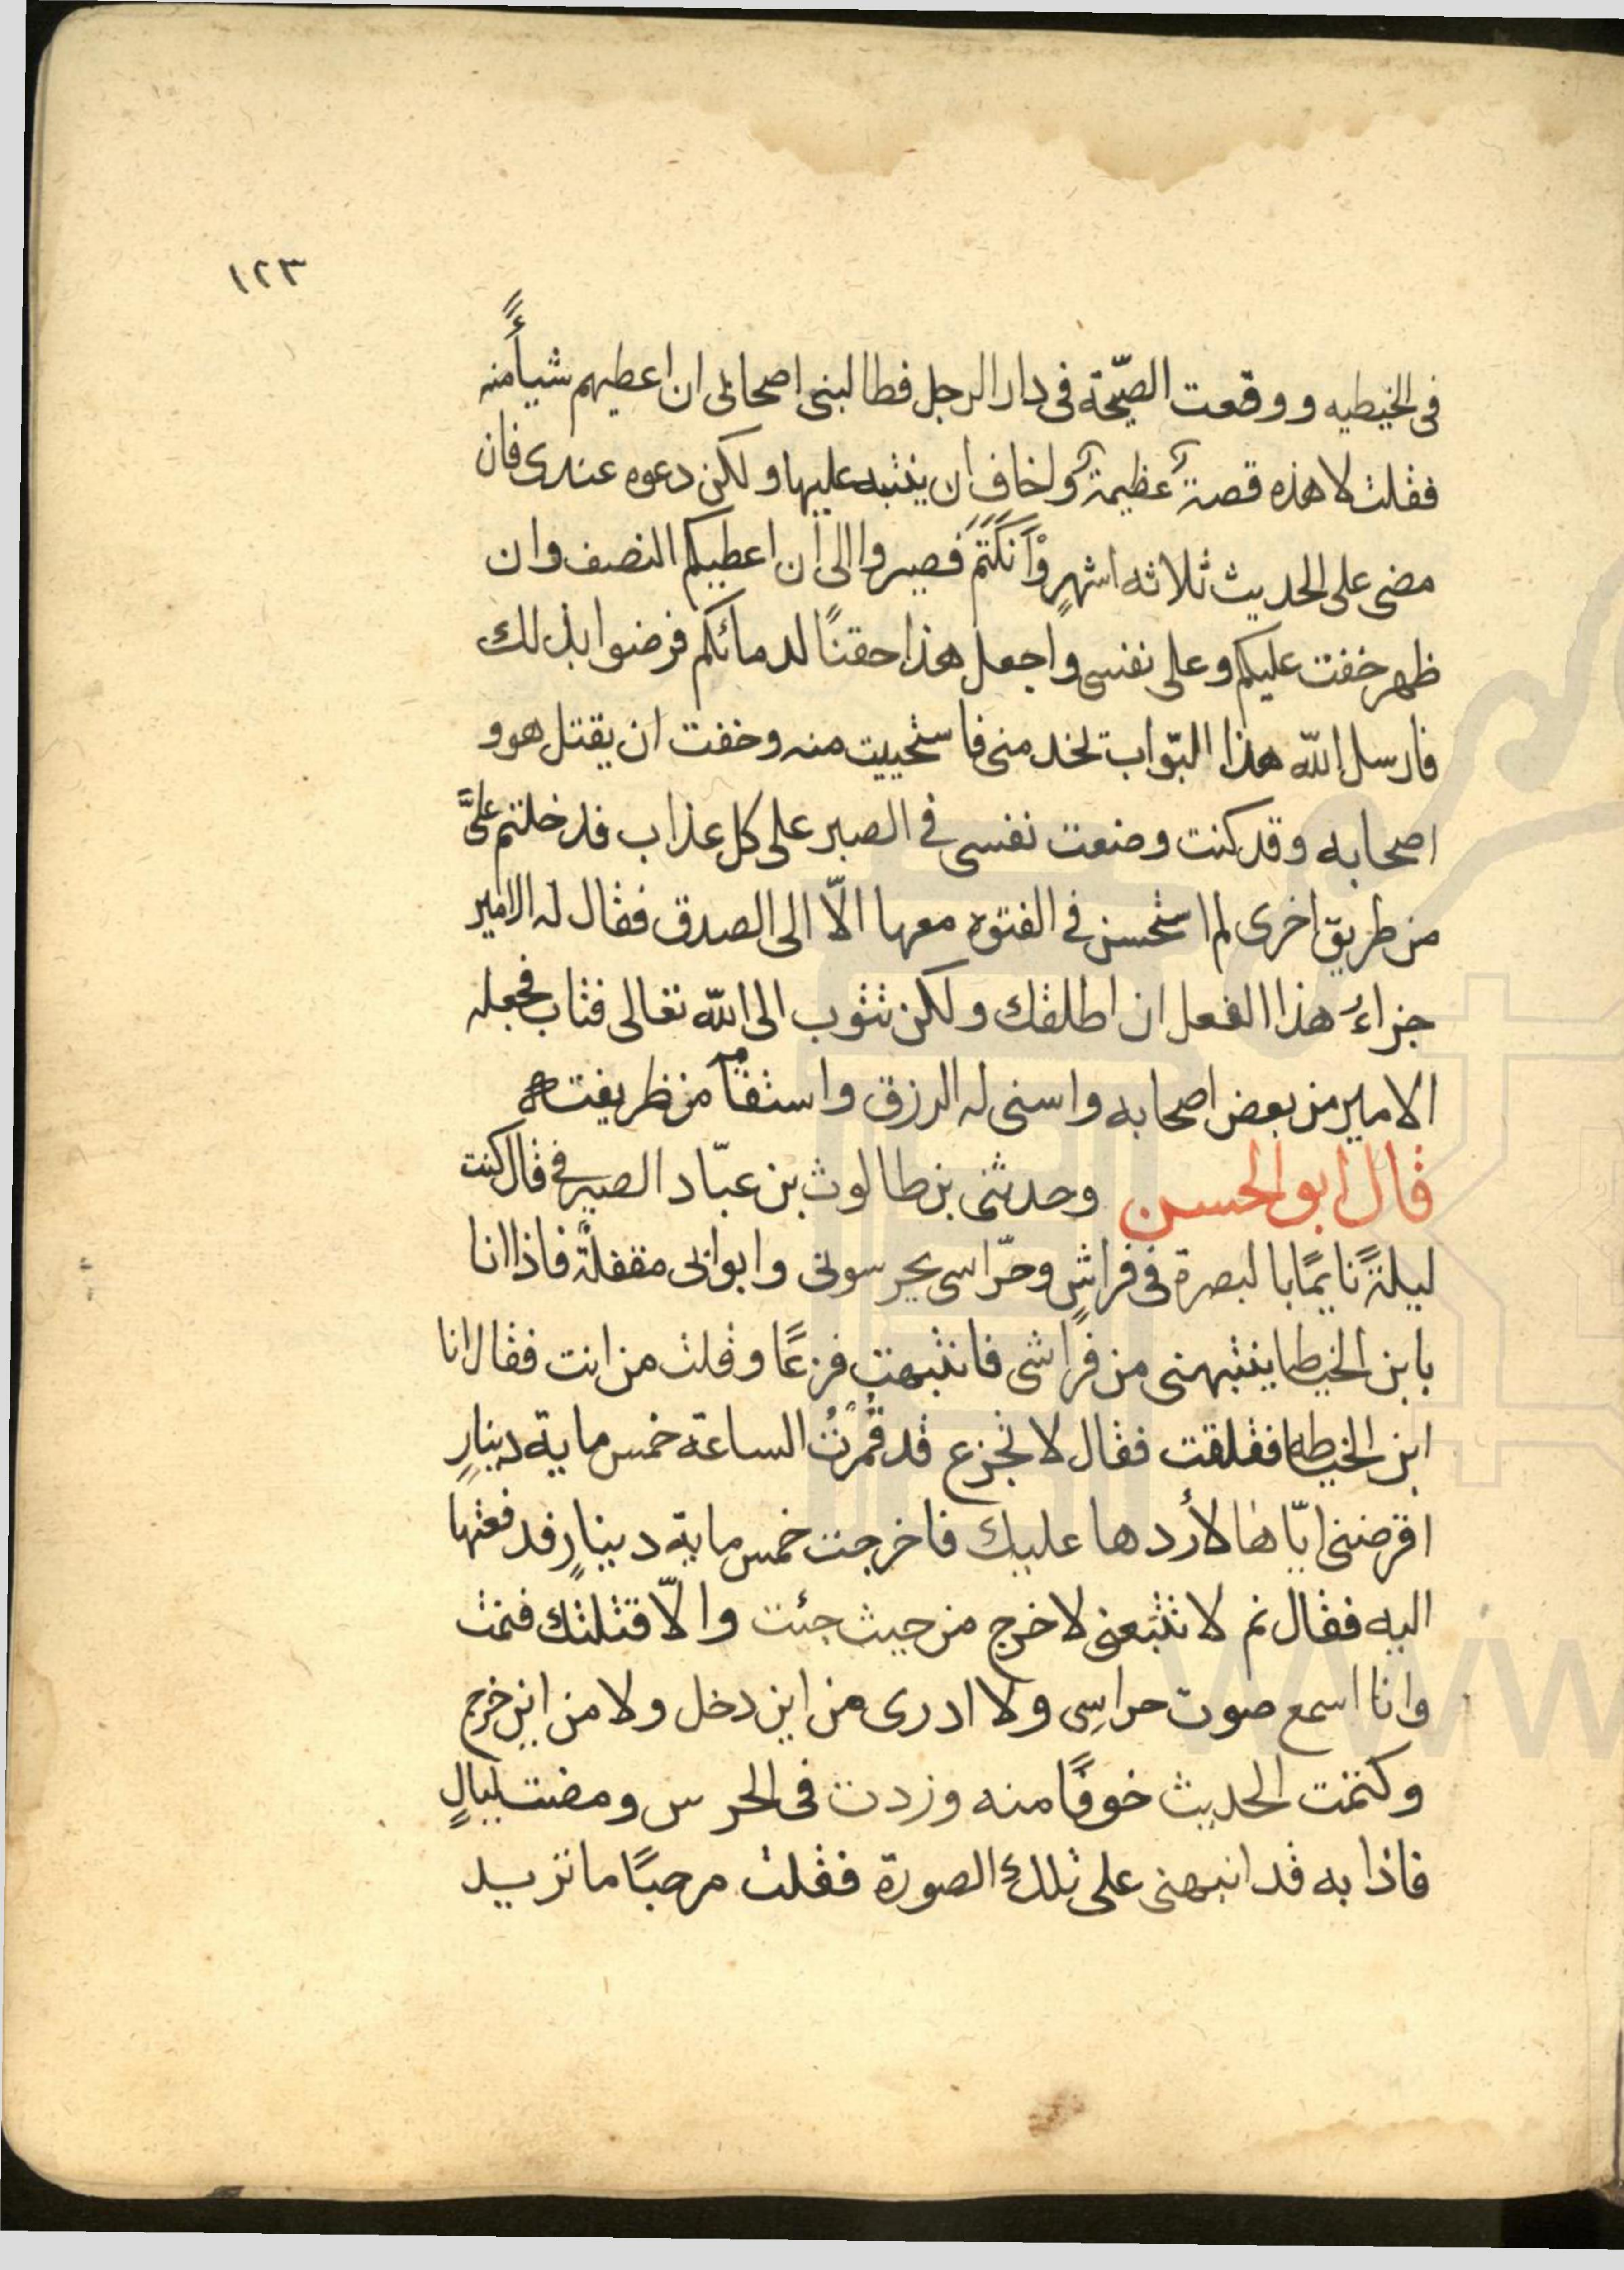 ١٢٣
فى الخيطيه ووقعت الصيّحة فى دار الرجل فطالبنى اصحابى ان اعطيهم شيأً منه
فقلت لا هذه قصة عظيمة ولخاف ان ينتبه عليها ولكن دعوه عندى فان
مضى على الحديث ثلاثه اشهرٍ وٱنكتم فصيروا الى ان اعطيكم النصف وان
ظهر خفت عليكم وعلى نفسى واجعل هذا حقنًا لدمائكم فرضوا بذلك
فارسل الله هذا البوّاب تخد منى فاستحييت منه وخفت ان يقتل هو و
اصحابه وقد كنت وضعت نفسى فى الصبر على كل عذاب فدخلتم علىَّ
من طريق اخرى لم استحسن فى الفتوه معها الّا الى الصدق فقال له الامير
جزاءُ هذا الفعل ان اطلقك ولكن تتوب الى الله تعالى فتاب فجعله
الامير من بعض اصحابه واسنى له الرزق واستقامر من ظريفته
قال ابو الحسن وحدثنى بن طالوث بن عبّاد الصيرفى قال كنت
ليلةً نايمًا بالبصرة فى فراشٍ وحرّاسى يحرسونى وابوابى مقفلةً فاذا انا
بابن الخيطا ينتبهنى من فراشى فانتبهت فزعًا وقلت من انت فقال انا
ابن الخيطه فقلقت فقال لا تجزع قد قُمُرْتُ الساعة خمس ماية دينارٍ
اقرضنى ايّاها لأردها عليك فاخرجت خمس ماية دينارٍ فدفعتها
اليه فقال نم لا تتبَعنى لاخرج من حيث جئت والّا قتلتك فنمت
وانا اسمع صوت حراسِى ولا ادرى من اين دخل ولا من اين خرج
وكتمت الحديث خوفًا منه وزدت فى الحرس ومضت ليالٍ
فاذا به قد انبهنى على تلك الصورة فقلت مرحبًا ما تريد